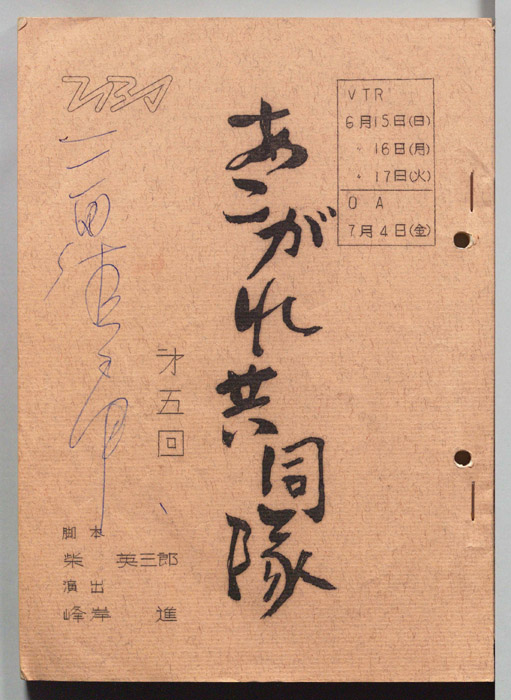 TBS
VTR
6月15日(日)
〃16日(月)
〃17日(火)
OA
7月4日(金)
あこがれ共同隊
才五回
脚本
柴英三郎
演出
峰岸進